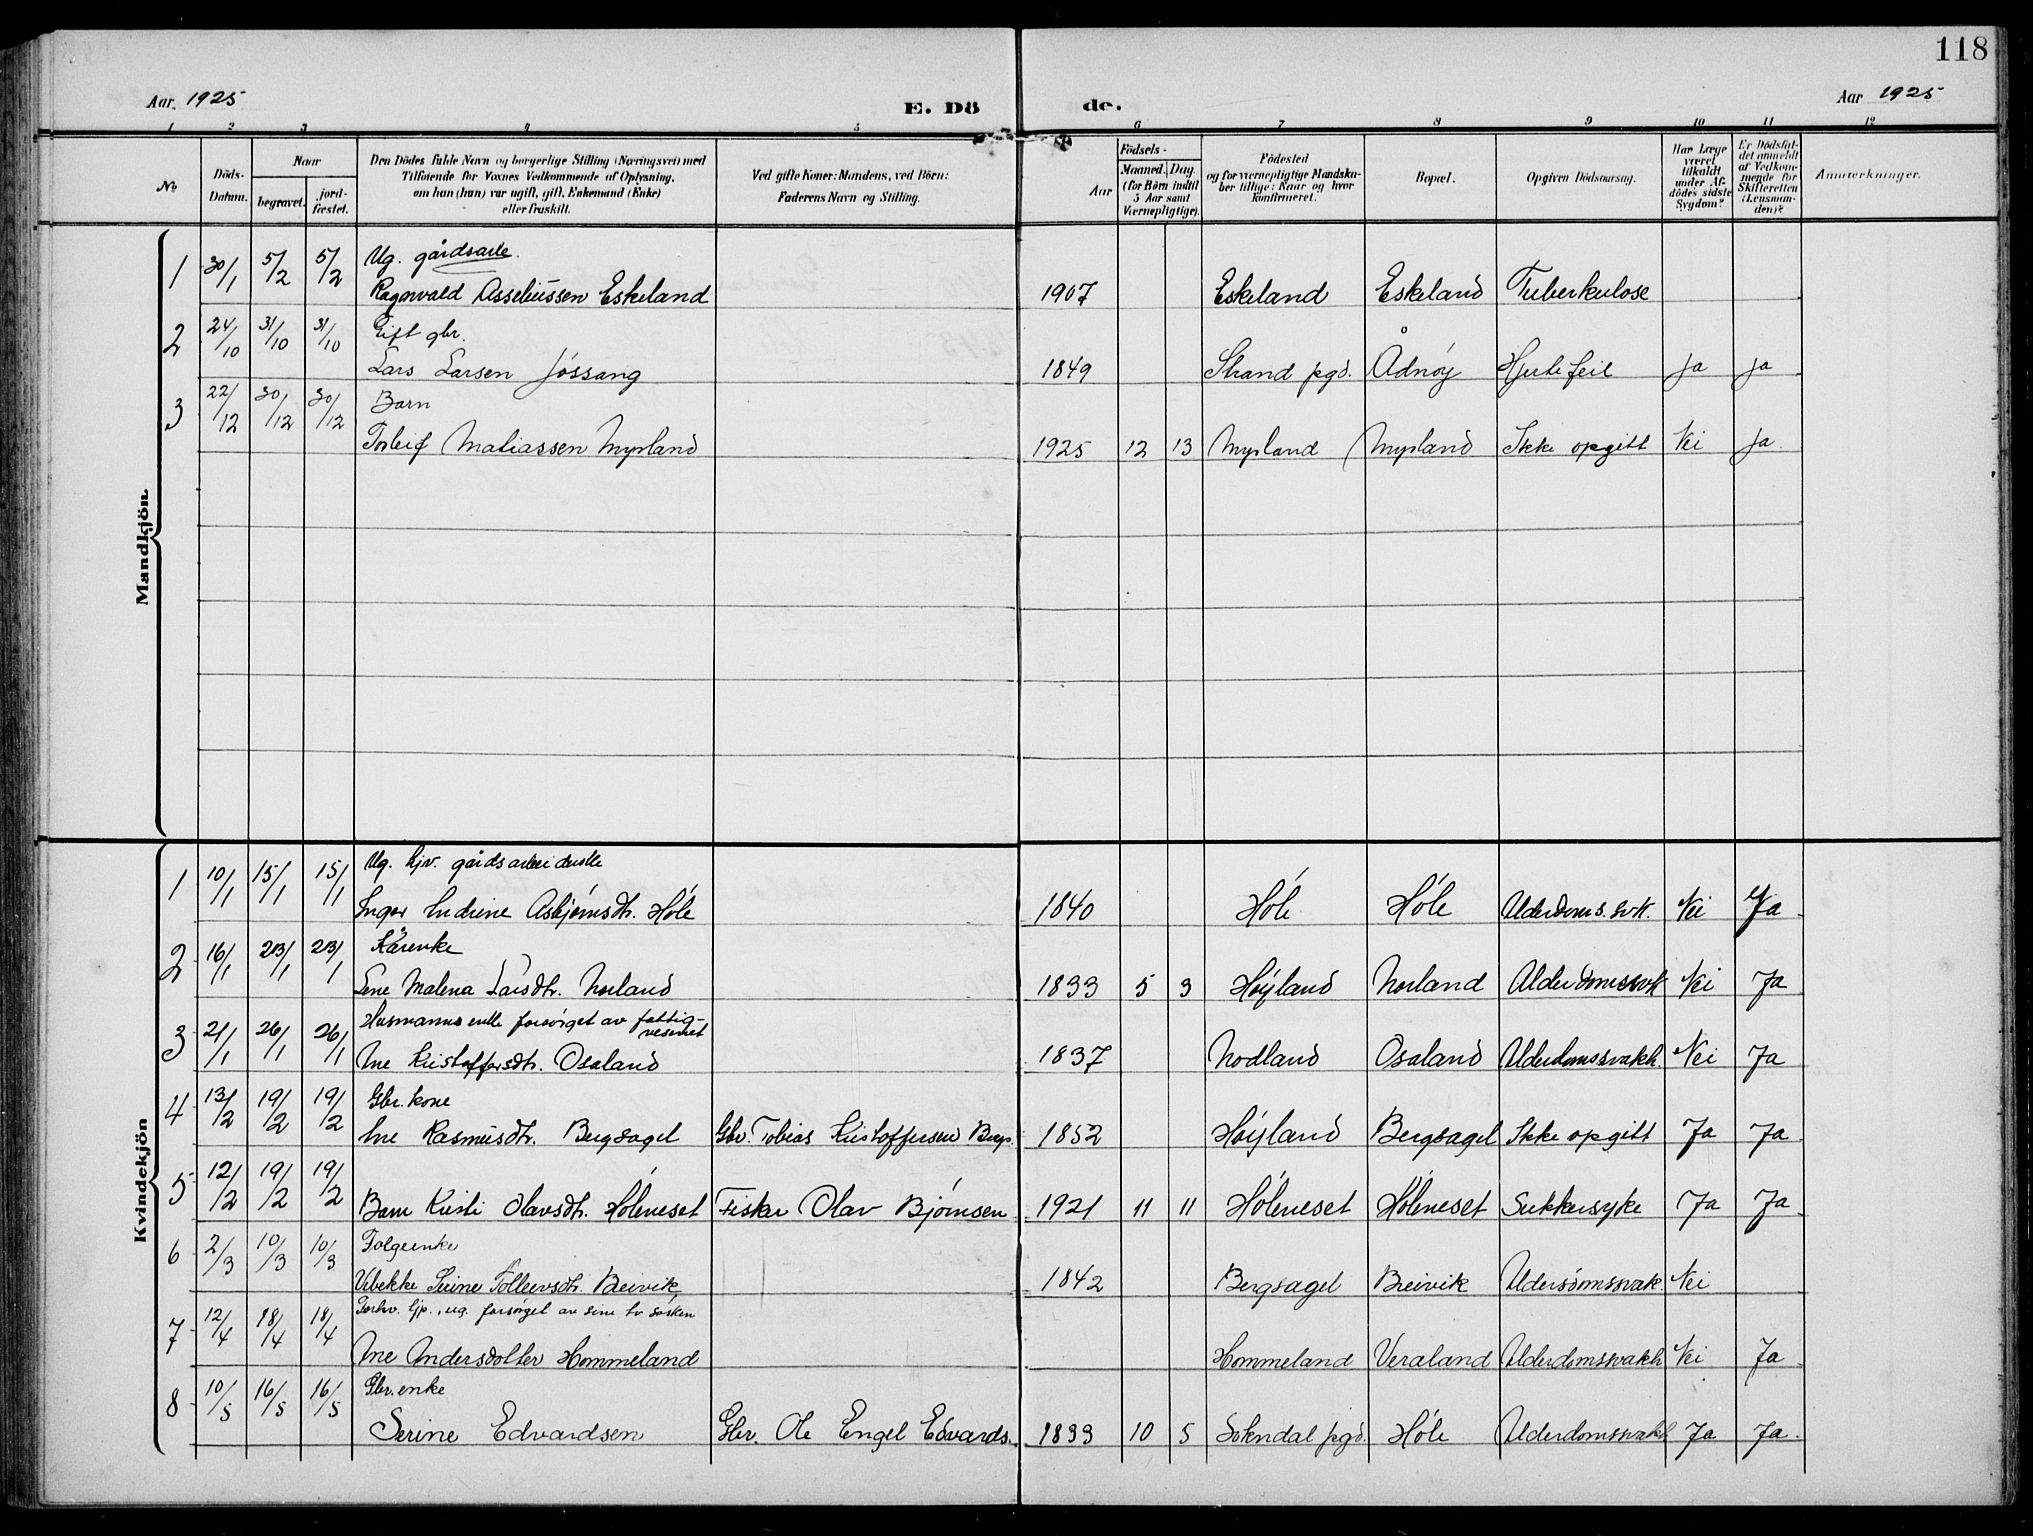 118
Aar 1925
E. Dö
de.
Aar 1925
1 2 3 4 5 6 7 8 9 10 11 12
No
Döds-
Datum.
Naar
begravet.
jord-
fæstet.
Den Dödes fulde Navn og borgerlige Stilling (Næringsvei) med
Tilföiende for Voxnes Vedkommende af Oplysning,
om han (hun) var ugift, gift, Enkemand (Enke)
eller fraskilt.
Ved gifte Koner: Mandens, ved Börn:
Faderens Navn og Stilling.
Födsels-
Aar
Maaned. Dag.
(for Börn indtil
5 Aar samt
Værnepligtige).
Födested
og for værnepligtige Mandska-
ber tillige: Naar og hvor
konfirmeret.
Bopæl.
Opgiven Dödsaarsag.
Har Læge
været
tilkaldt
under Af-
dödes sidste
Sygdom?
Er Dödsfal-
det anmeldt
af Vedkom-
mende for
Skifteretten
(Lensman-
den)?
Anmerkninger.
Mandkjön
1 30/1 5/2 5/2 Ug. gårdsarb.
Ragnvald Asseliussen Eskeland 1907 Eskeland Eskeland Tuberkulose
2 24/10 31/10 31/10 Gift gbr.
Lars Larsen Jøssang 1849 Strand pgd. Ådnøy Hjertefeil Ja Ja
3 22/12 30/12 30/12 Barn
Torleif Matiassen Myrland 1925 12 13 Myrland Myrland Ikke opgitt Nei Ja
Kvindekjön
1 10/1 15/1 15/1 Ug. hjv. gårdsarbeiderske
Inger Indrine Asbjørnsdtr. Høle 1840 Høle Høle Alderdoms.svk. Nei Ja
2 16/1 23/1 23/1 Kårenke
Lene Malena Larsdtr. Norland 1833 5 3 Høyland Norland Alderdomssvk Nei Ja
3 21/1 26/1 26/1 Husmanns enke forsørget av fattig-
vesenet
Ane Kristoffersdtr. Osaland 1837 Nodland Osaland Alderdomssvakh. Nei Ja
4 13/2 19/2 19/2 Gbr. kone
Ane Rasmusdtr. Bergsagel Gbr. Tobias Kristoffersen Bergs. 1852 Høyland Bergsagel Ikke opgitt Ja Ja
5 12/2 19/2 19/2
Barn Kirsti Olavsdtr. Høleneset Fisker Olav Bjørnsen 1921 11 11 Høleneset Høleneset Sukkersyke Ja Ja
6 2/3 10/3 10/3 Folgeenke
Vibekke Serine Tolleivsdtr. Breivik 1842 Bergsagel Breivik Alderdomssvak. Nei
7 12/4 18/4 18/4 ug. forsørget av sine to søsken
Ane Andersdotter Hommeland Hommeland Veraland Alderdomssvakh Nei Ja
8 10/5 16/5 16/5 Gbr. enke
Serine Edvardsen Gbr. Ole Engel Edvards. 1833 10 5 Sokndal pgd. Høle Alderdomssvakh Ja Ja